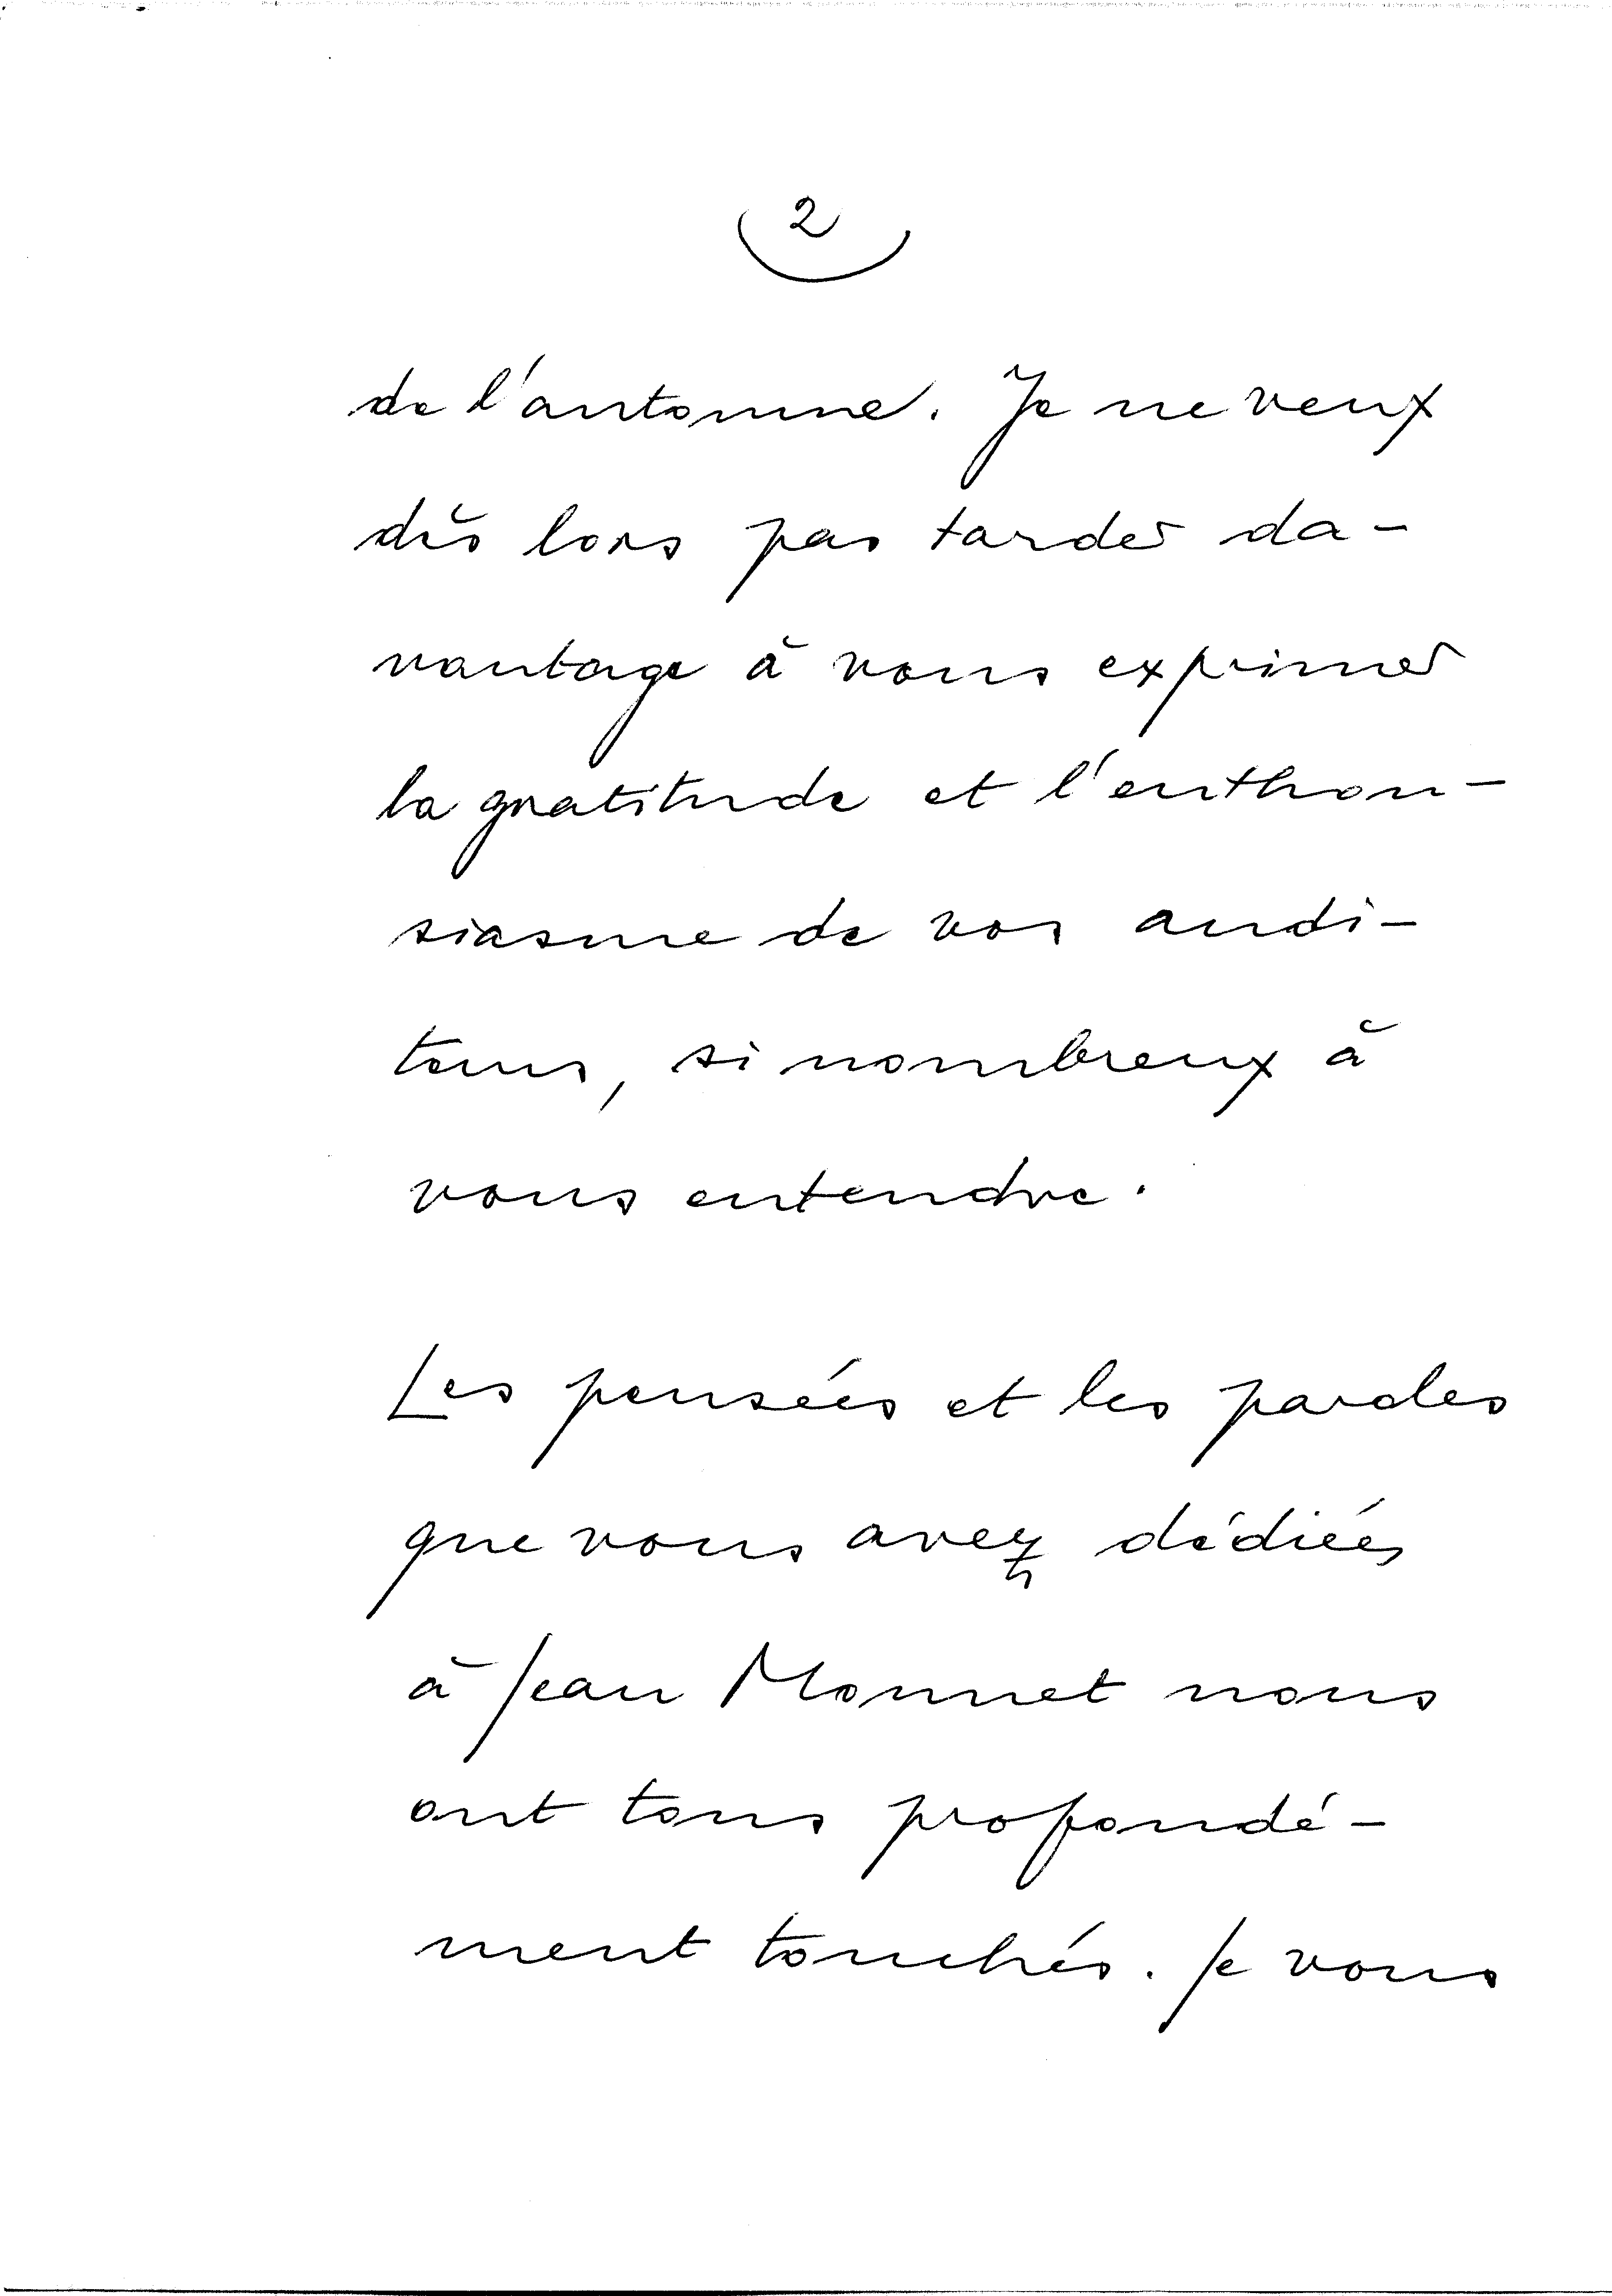 2
de l'automne. Je ne veux
dès lors pas tarder da-
vantage à vous exprimer
la gratitude et l'enthou-
siasme de vos audi-
teurs, si nombreux à
vous entendre.
Les pensées et les paroles
que vous avez dédiées
à Jean Monnet nous
ont tous profondé-
ment touchés. Je vous